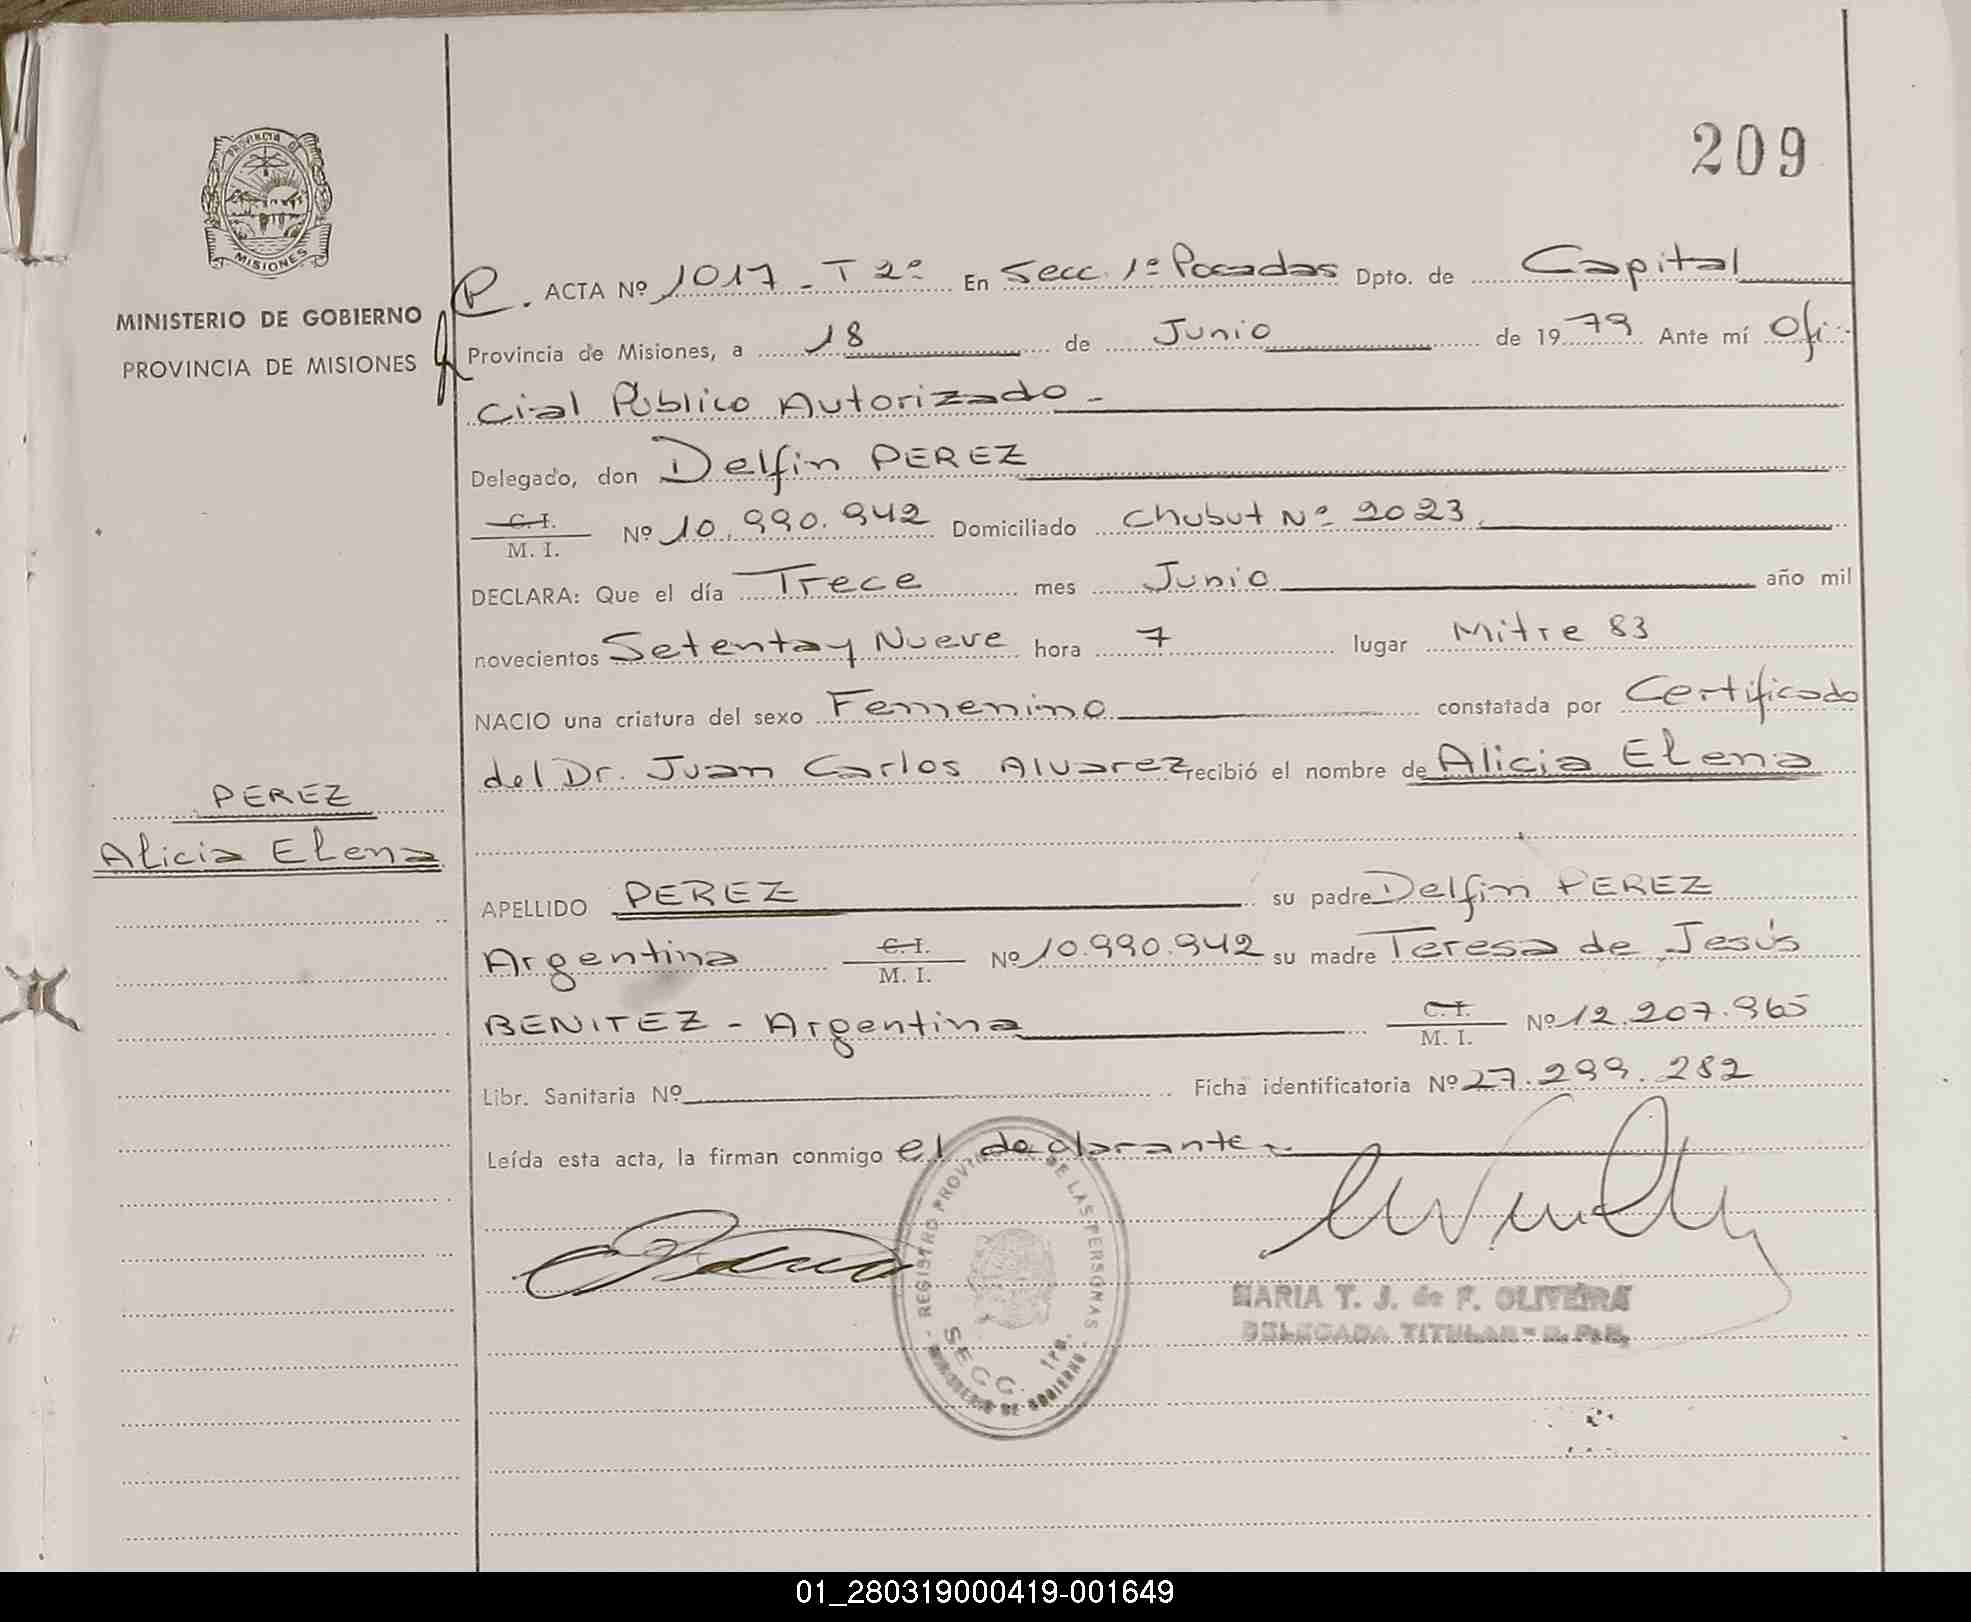 209
PROVINCIA DE
MISIONES
MINISTERIO DE GOBIERNO
PROVINCIA DE MISIONES
P. ACTA Nº 1017 - T 2º En Secc. 1º Posadas Dpto. de Capital
Provincia de Misiones, a 18 de Junio de 1979 Ante mí Ofi-
cial Público Autorizado -
Delegado, don Delfin PEREZ
C. I.
M. I. Nº 10.990.942 Domiciliado Chubut Nº 2023
DECLARA: Que el día Trece mes Junio año mil
novecientos Setenta y Nueve hora 7 lugar Mitre 83
NACIO una criatura del sexo Femenino constatada por Certificado
del Dr. Juan Carlos Alvarez recibió el nombre de Alicia Elena
PEREZ
Alicia Elena
APELLIDO PEREZ su padre Delfin PEREZ
Argentina C. I.
M. I. Nº 10.990.942 su madre Teresa de Jesús
BENITEZ - Argentina C. I.
M. I. Nº 12.207.965
Libr. Sanitaria Nº Ficha identificatoria Nº 27.299.282
Leída esta acta, la firman conmigo el declarante.-
REGISTRO PROVINCIAL DE LAS PERSONAS
SECC. 1ra.
MINISTERIO DE GOBIERNO
MARIA T. J. de F. OLIVEIRA
DELEGADA TITULAR - R. P. P.
01_280319000419-001649